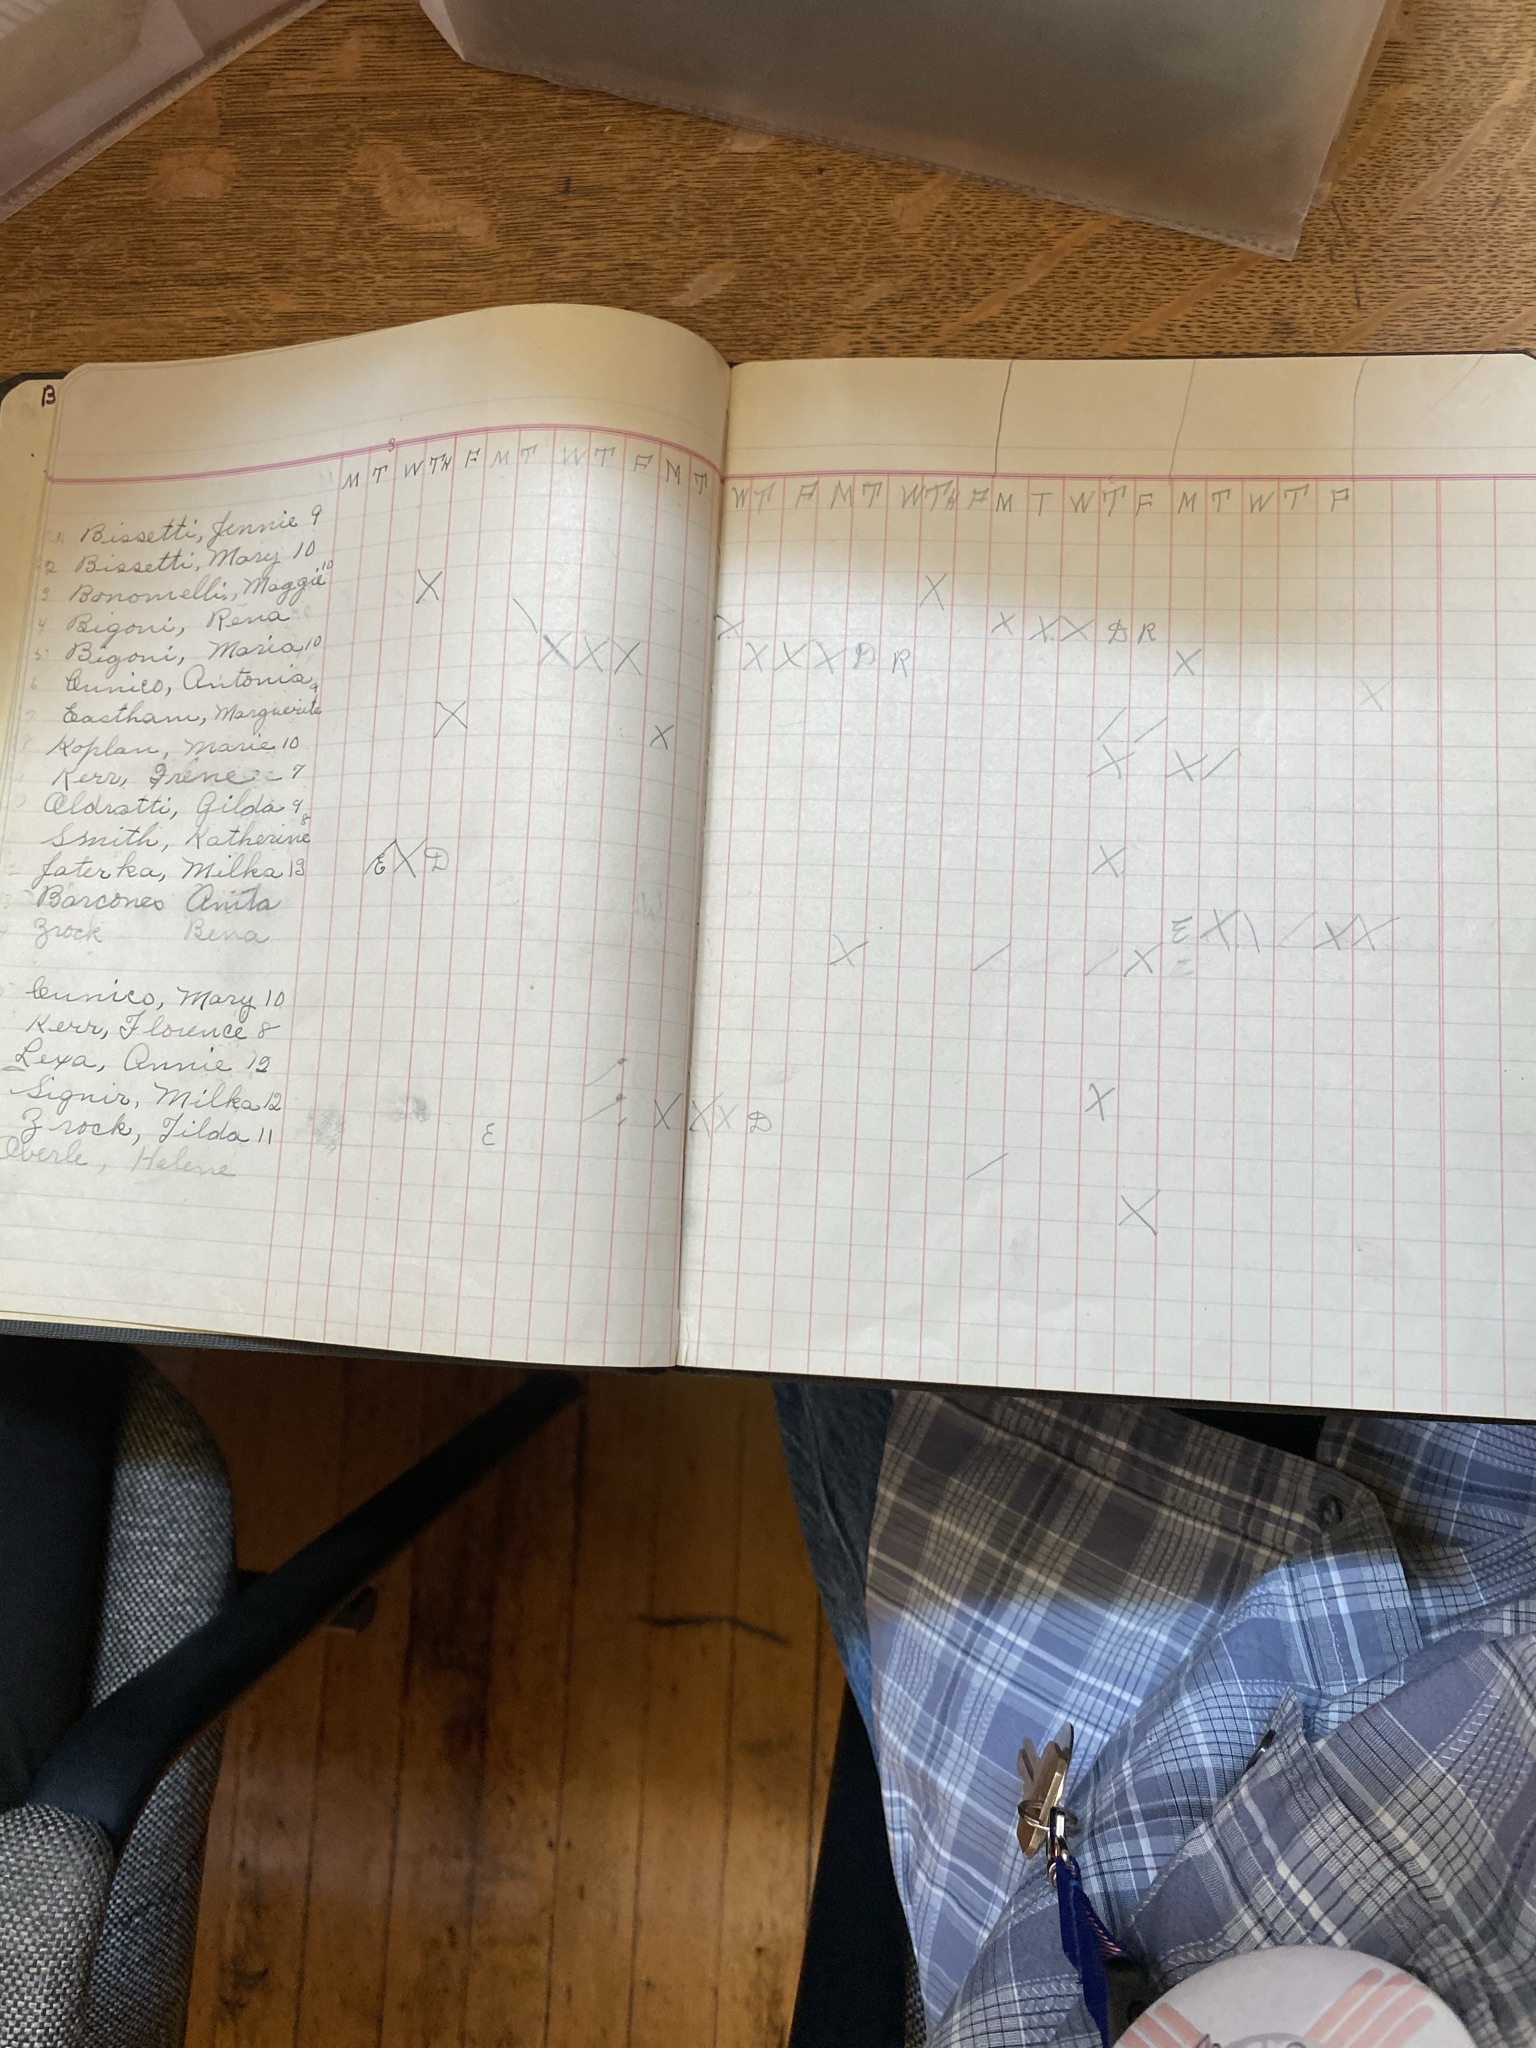 B
S
M T W TH F M T W T F M T W T F M T W TH F M T W T F M T W T F
Bissetti, Jennie 9
2 Bissetti, Mary 10
3 Bonomelli, Maggie 10 X X
4 Bigoni, Rena \ X X X X D R
5 Bigoni, Maria 10 X X X X X X D R X
6 Cunico, Antonia 9 X
7 Eastham, Marguerite X / /
8 Koplan, Marie 10 X X X /
Kerr, Irene 7
Aldrotti, Gilda 9
Smith, Katherine 8 X
Jaterka, Milka 13 E X D
Barcones Anita E X \ / X X
Zrock Bena X / / X
Cunico, Mary 10
Kerr, Florence 8
Lexa, Annie 12 /
Signir, Milka 12 / X X X D X
Zrock, Tilda 11 E
Oberle, Helene / X